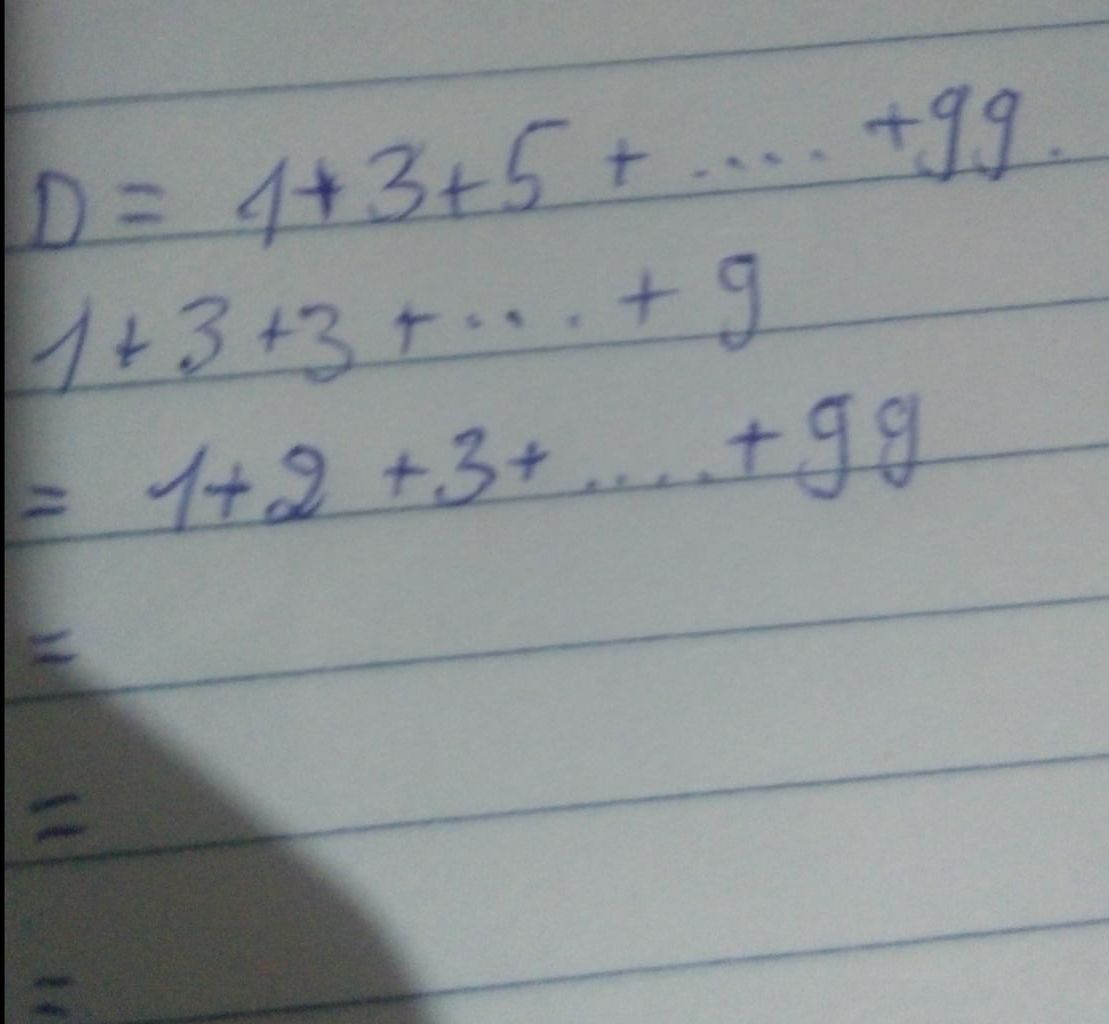 D = 1+3+5 + .... +99.
1+3+3 + .... + 9
= 1+2 +3+ .... +99
=
=
=